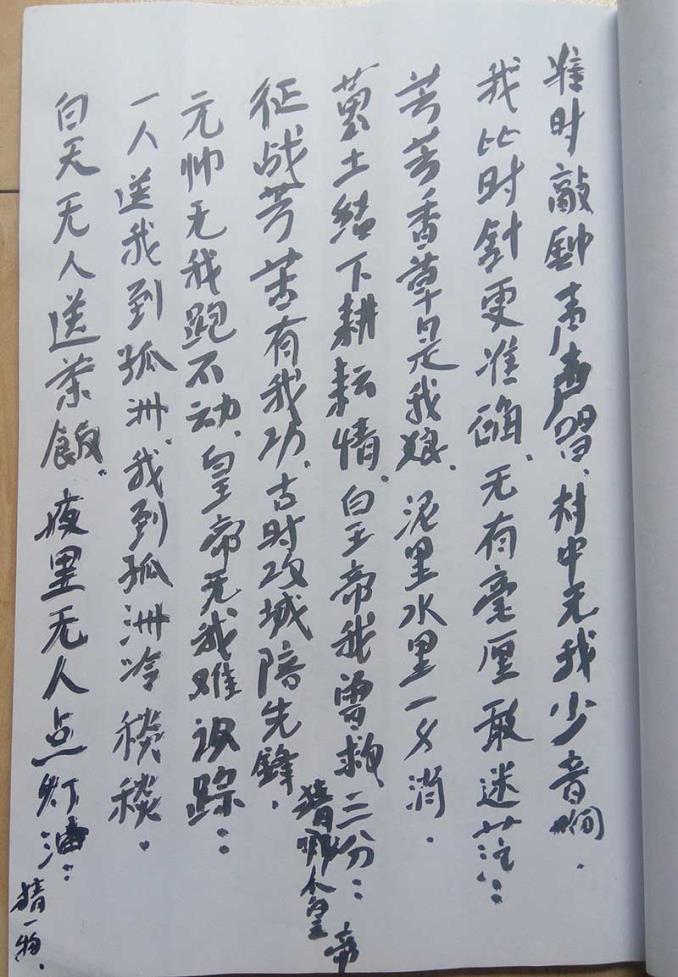 准时敲钟声声留、村中无我少音啊.
我比时针更准确、无有毫厘敢迷茫:
芳芳香草是我娘、泥里水里一身滴.
葛土结下耕耘情、白玉帝我曾救三分:
征战劳苦有我功、古时攻城陪先锋.
元帅无我跑不动、皇帝无我难设踪:
猜哪个皇帝
一人送我到孤洲、我到孤洲冷秽秽.
白天无人送茶飯、夜里无人点灯油:
猜一物.